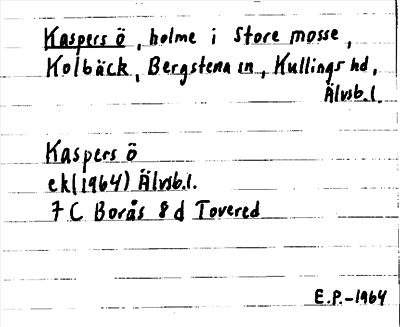 Kaspers ö, holme i Store mosse,
Kolbäck, Bergstena sn, Kullings hd,
Älvsb.l.
Kaspers ö
ek(1964) Älvsb.l.
7 C Borås 8 d Tovered
E.P.-1964